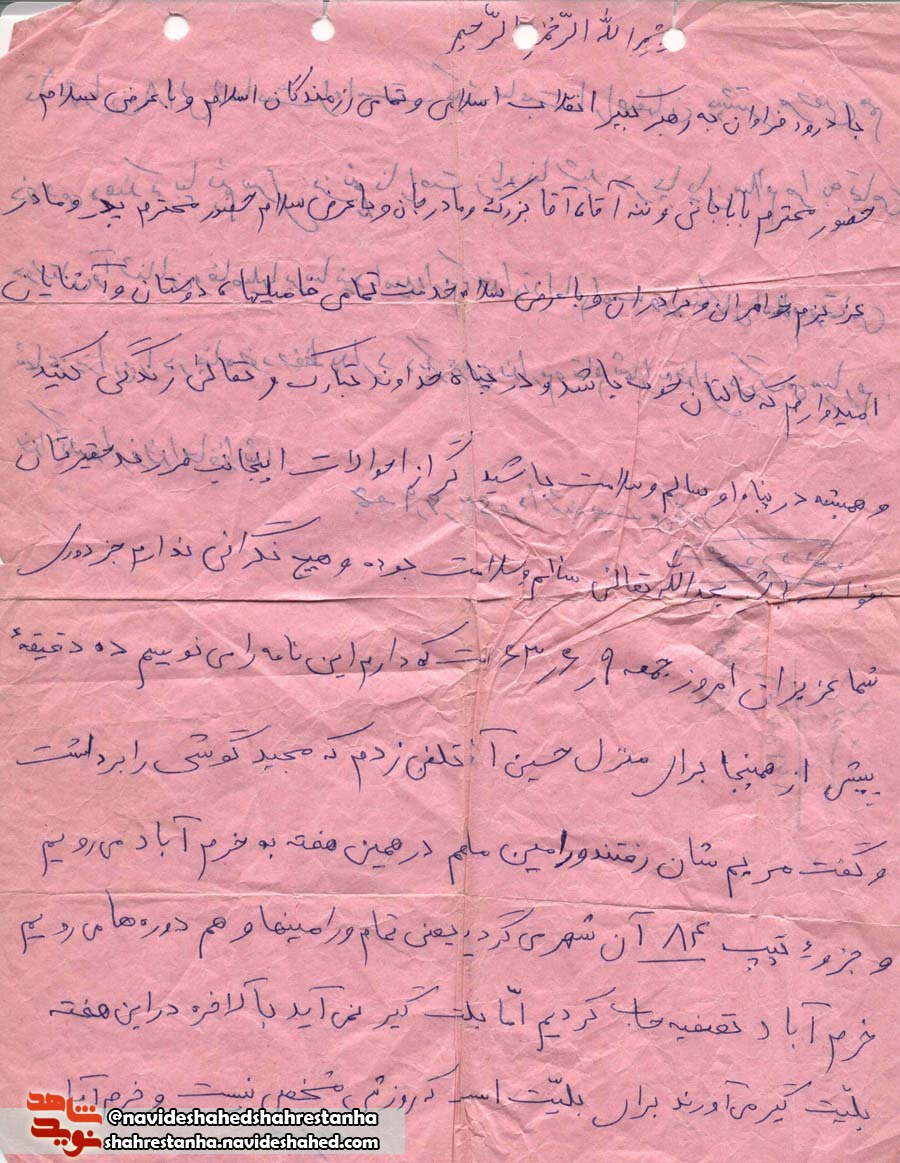 بسم الله الرّحمن الرّحیم
با درود فراوان به رهبر کبیر انقلاب اسلامی و تمامی رزمندگان اسلام و با عرض سلام
حضور محترم باباجانی و ننه آقا، آقا بزرگ و مادرجان و با عرض سلام حضور محترم پدر و مادر
عزیزم خواهران و برادران و با عرض سلام خدمت تمامی فامیلها، دوستان و آشنایان
امیدوارم که حالتان خوب باشد و در پناه خداوند تبارک و تعالی زندگی کنید
و همیشه در پناه او سالم و سلامت باشید گر از احوالات اینجانب فرزند حقیرتان
بحمدالله تعالی سالم و سلامت بوده و هیچ نگرانی ندارم جز دوری
شما عزیزان امروز جمعه ۹ر۶ر۶۳ است که دارم این نامه را می نویسم ده دقیقهٔ
پیش از همینجا برای منزل حسین آقا تلفن زدم که مجید گوشی را برداشت
و گفت مریم شان رفتند ورامین ما هم در همین هفته به خرم آباد می رویم
و جزوهٔ تیپ ۸۴ آن شهر می گردیم یعنی تمام ورامینها و هم دوره ها می رویم
خرم آباد تصفیه حساب کردیم امّا بلیت گیر نمی آید بالاخره در این هفته
بلیّت گیر می آورند برای بلیّت است که روزش مشخص نیست و خرم آباد
شاهد
نوید
@navideshahedshahrestanha
shahrestanha.navideshahed.com